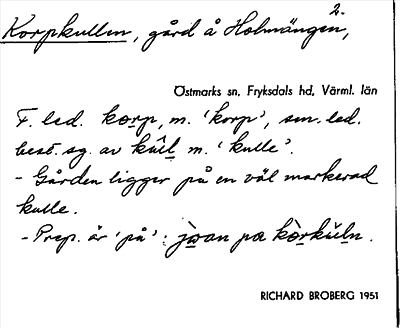 2.
Korpkullen, gård å Holmängen,
Östmarks sn, Fryksdals hd, Värml. län
F. led. korp, m. 'korp', sen. led.
best. sg. av kŭll m. 'kulle'.
- Gården ligger på en väl markerad
kulle.
- Prep. är 'på': jwan pa kòrkŭln.
RICHARD BROBERG 1951